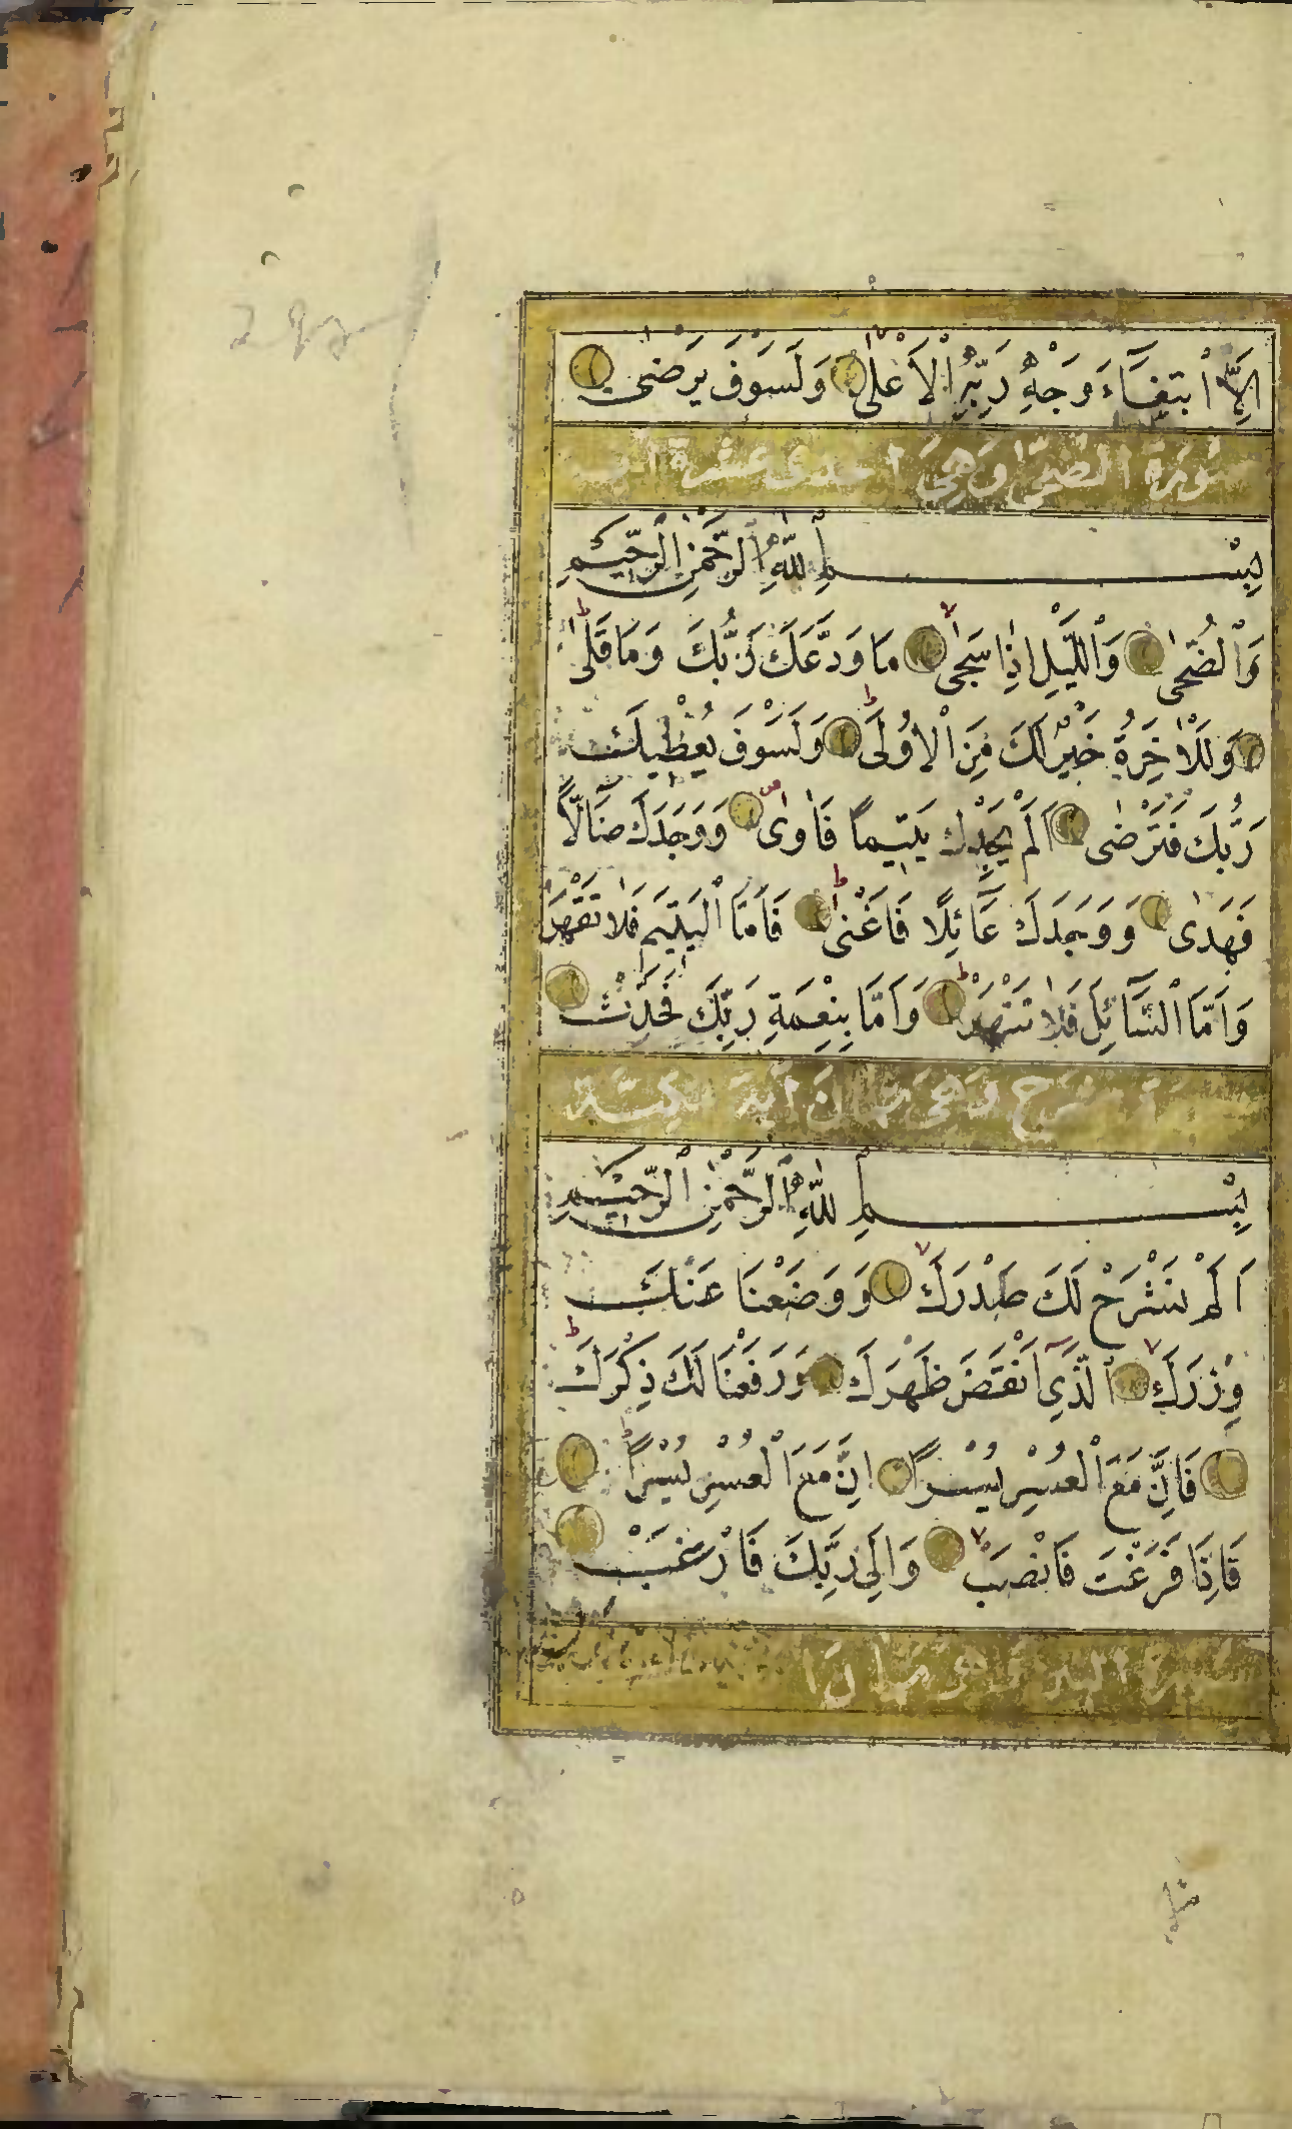 اِلَّا ٱبْتِغَٓاءَ وَجْهِ رَبِّهِ ٱلْاَعْلٰىۚ وَلَسَوْفَ يَرْضٰى
سُورَةُ الضُّحٰى وَهِيَ احدى عشرة آية
بِسْمِ ٱللّٰهِ ٱلرَّحْمٰنِ ٱلرَّحِيمِ
وَٱلضُّحٰى وَٱللَّيْلِ اِذَا سَجٰى مَا وَدَّعَكَ رَبُّكَ وَمَا قَلٰى
وَلَلْاٰخِرَةُ خَيْرٌ لَكَ مِنَ ٱلْاُولٰى وَلَسَوْفَ يُعْطِيكَ
رَبُّكَ فَتَرْضٰى اَلَمْ يَجِدْكَ يَتِيمًا فَاٰوٰى وَوَجَدَكَ ضَٓالًّا
فَهَدٰى وَوَجَدَكَ عَٓائِلًا فَاَغْنٰى فَاَمَّا ٱلْيَتِيمَ فَلَا تَقْهَرْ
وَاَمَّا ٱلسَّٓائِلَ فَلَا تَنْهَرْ وَاَمَّا بِنِعْمَةِ رَبِّكَ فَحَدِّثْ
وَهِيَ ثمان آية مكية
بِسْمِ ٱللّٰهِ ٱلرَّحْمٰنِ ٱلرَّحِيمِ
اَلَمْ نَشْرَحْ لَكَ صَدْرَكَ وَوَضَعْنَا عَنْكَ
وِزْرَكَ ٱلَّذِٓي اَنْقَضَ ظَهْرَكَ وَرَفَعْنَا لَكَ ذِكْرَكَ
فَاِنَّ مَعَ ٱلْعُسْرِ يُسْرًا اِنَّ مَعَ ٱلْعُسْرِ يُسْرًا
فَاِذَا فَرَغْتَ فَانْصَبْ وَاِلٰى رَبِّكَ فَارْغَبْ